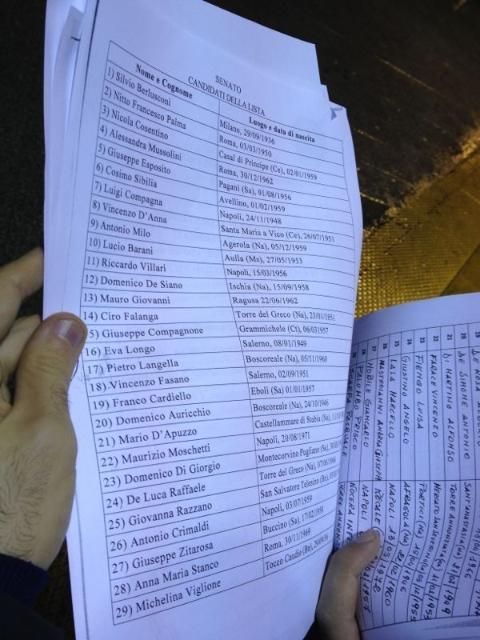 SENATO
CANDIDATI DELLA LISTA
Nome e Cognome Luogo e data di nascita
1) Silvio Berlusconi Milano, 29/09/1936
2) Nitto Francesco Palma Roma, 03/03/1950
3) Nicola Cosentino Casal di Principe (Ce), 02/01/1959
4) Alessandra Mussolini Roma, 30/12/1962
5) Giuseppe Esposito Pagani (Sa), 01/08/1956
6) Cosimo Sibilia Avellino, 01/02/1959
7) Luigi Compagna Napoli, 24/11/1948
8) Vincenzo D'Anna Santa Maria a Vico (Ce), 26/07/1951
9) Antonio Milo Agerola (Na), 05/12/1959
10) Lucio Barani Aulla (Ms), 27/05/1953
11) Riccardo Villari Napoli, 15/03/1956
12) Domenico De Siano Ischia (Na), 15/09/1958
13) Mauro Giovanni Ragusa 22/06/1962
14) Ciro Falanga Torre del Greco (Na),
5) Giuseppe Compagnone Grammichele (Ct), 06/03/1957
16) Eva Longo Salerno, 08/01/1949
17) Pietro Langella Boscoreale (Na),
18) Vincenzo Fasano Salerno, 02/09/1951
19) Franco Cardiello Eboli (Sa) 01/01/1957
20) Domenico Auricchio Boscoreale (Na), 24/10/1966
21) Mario D'Apuzzo Castellammare di Stabia
22) Maurizio Moschetti Napoli, 28/08/1971
23) Domenico Di Giorgio Montecorvino Pugliano
24) De Luca Raffaele Torre del Greco (Na),
25) Giovanna Razzano San Salvatore Telesino
26) Antonio Crimaldi Napoli, 03/07/1959
27) Giuseppe Zitarosa Buccino (Sa),
28) Anna Maria Stanco Roma,
29) Michelina Viglione Tocco Caudio
DE SIMONE ANTONIO
DI MARTINO ALFONSO TORRE ANNUNZIATA
FARACE VINCENZO
FIENGO LUISA PORTICI (NA)
GIUSTINI ANGELO AFRAGOLA (NA)
LALLA MARCELLO NAPOLI
MASTROIANNI
NOBILE GIANCARLO NAPOLI
PALUMBO PRISCO NOCERA